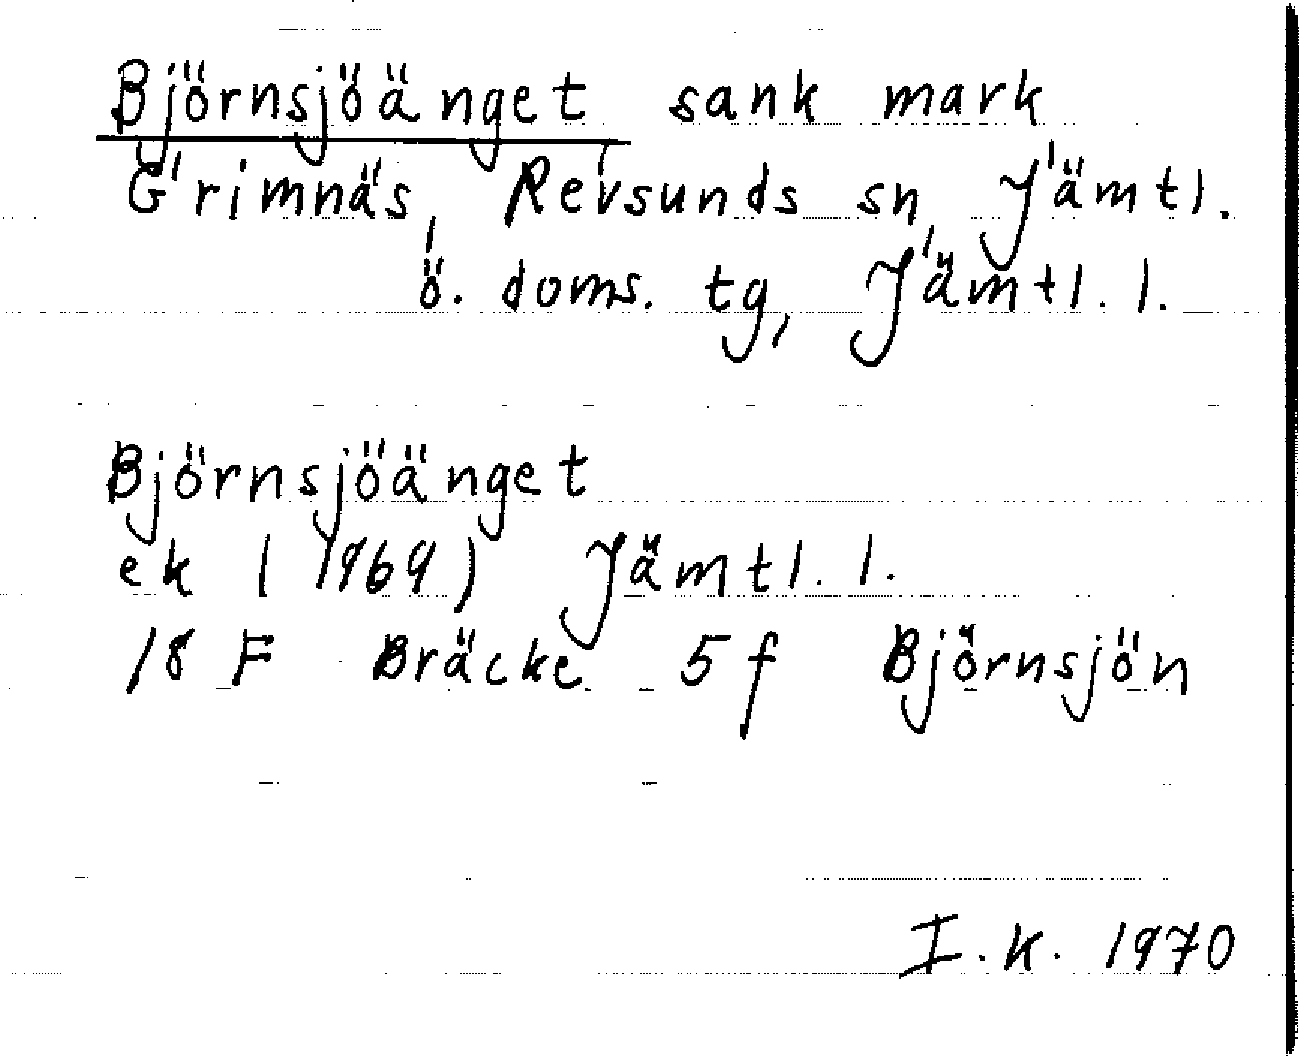 Björnsjöänget sank mark
Grimnäs, Revsunds sn, Jämtl.
ö. doms. tg, Jämtl. l.
Björnsjöänget
ek (1969) Jämtl. l.
18 F Bräcke 5 f Björnsjön
I.K. 1970